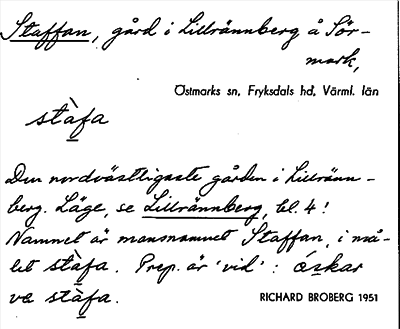 Staffan, gård i Lillrännberg å Sör-
mark,
Östmarks sn, Fryksdals hd, Värml. län
stàfa
Den nordvästligaste gården i Lillränn-
berg. Läge, se Lillrännberg, bl. 4!
Namnet är mansnamnet Staffan, i må-
let stàfa. Prep. är 'vid': óskar
va stàfa.
RICHARD BROBERG 1951